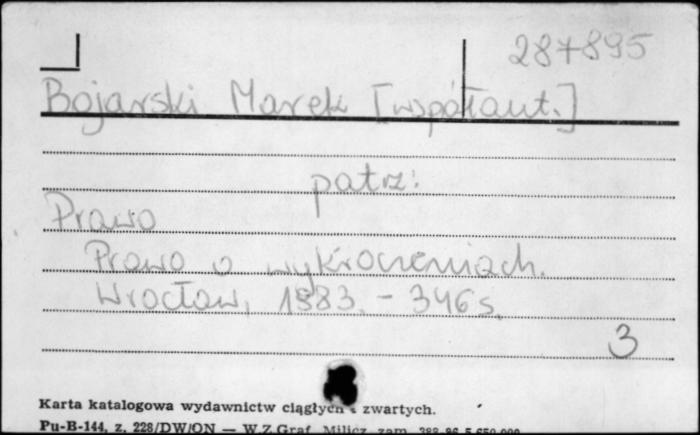 287895
Bojarski Marek [współaut.]
patrz:
Prawo
Prawo o wykroczeniach.
Wrocław, 1983. - 346 s.
3
Karta katalogowa wydawnictw ciągłych i zwartych.
Pu-B-144, z. 228/DW/ON — W.Z.Graf. Milicz, zam.